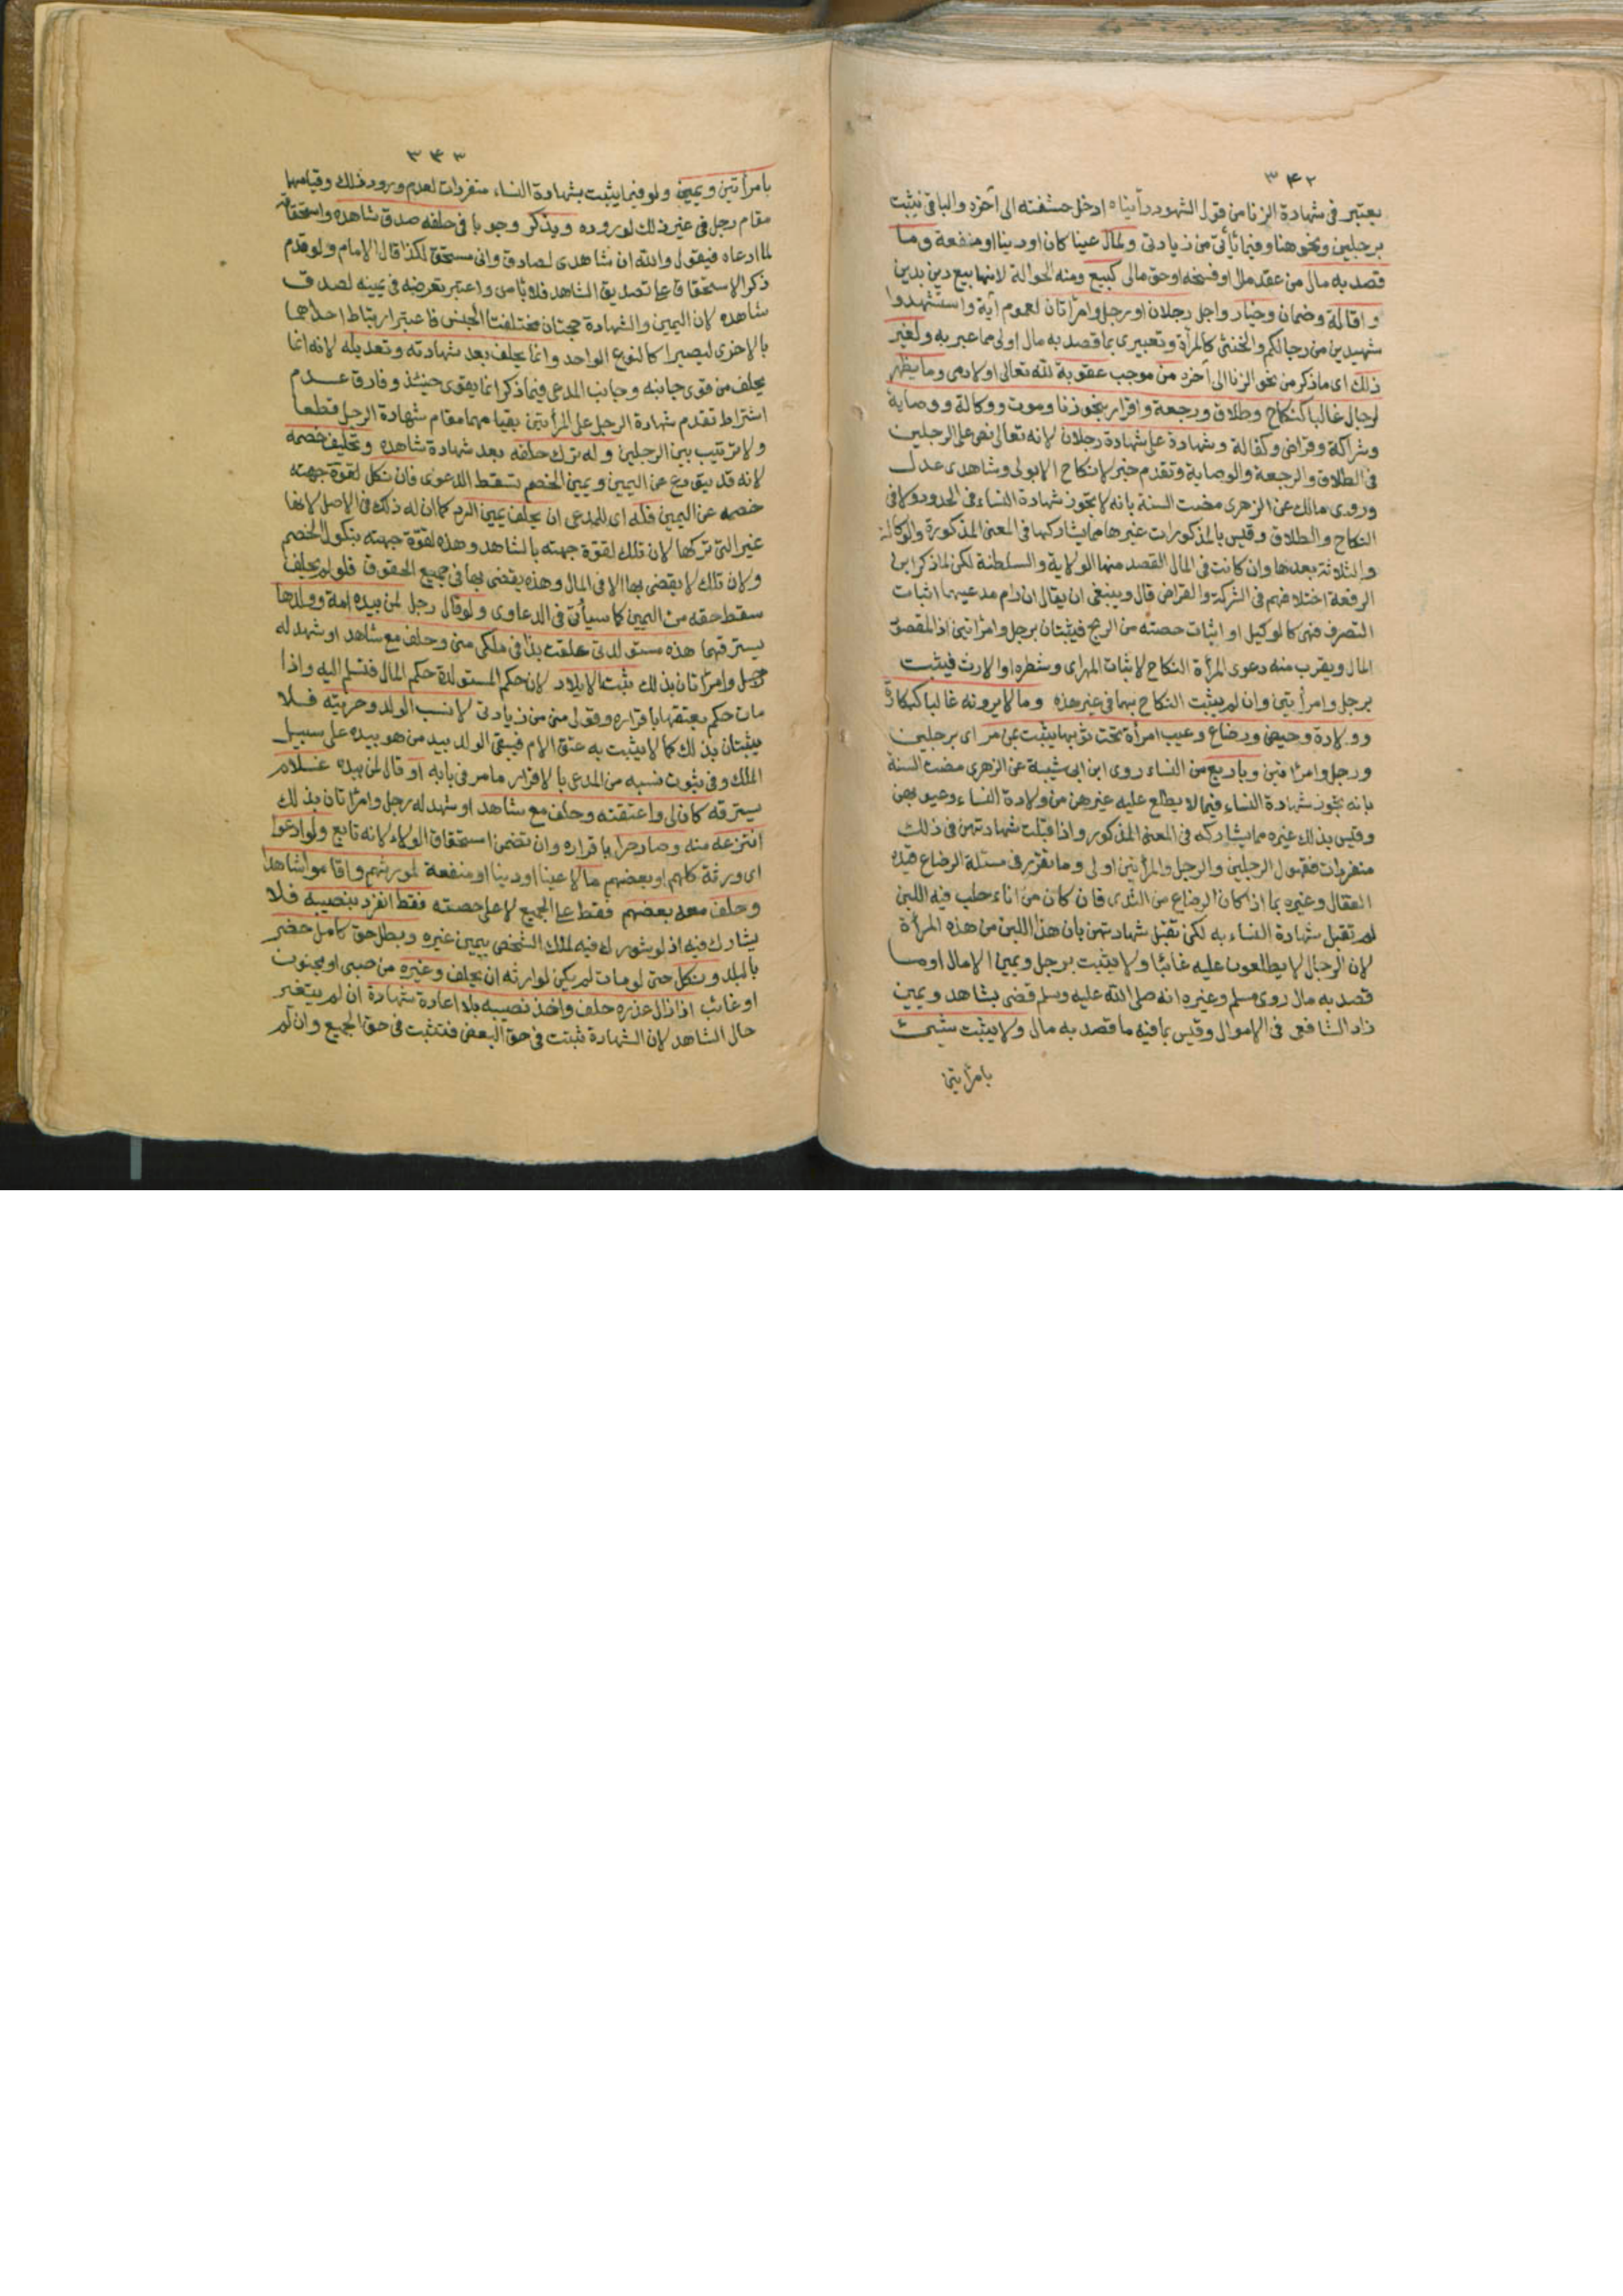 ٣٤٢
يعتبر فى شهادة الزنا من قول الشهود رأيناه ادخل حشفته الى آخره والباقى يثبت
برجلين ونحو هنا وفيما يأتى من زيادتى ولمال عينا كان او دينا او منفعة وما
قصد به مال من عقد مال او فسخه او حق مالى كبيع ومنه الحوالة لانها بيع دين بدين
واقالة وضمان وخيار واجل رجلان او رجل وامرأتان لعموم آية واستشهدوا
شهيدين من رجالكم والخنثى كالمرأة وتعبيرى بما قصد به مال اولى مما عبر به ولغير
ذلك اى ما ذكر من نحو الزنا الى آخره من موجب عقوبة لله تعالى او لادمى وما يظهر
لرجال غالبا كنكاح وطلاق ورجعة واقرار بنحو زنا وموت ووكالة ووصاية
وشراكة وقراض وكفالة وشهادة على شهادة رجلان لانه تعالى نص على الرجلين
فى الطلاق والرجعة والوصاية وتقدم خبر لا نكاح الا بولى وشاهدى عدل
وروى مالك عن الزهرى مضت السنة بانه لا تجوز شهادة النساء فى الحدود ولا فى
النكاح والطلاق وقيس بالمذكورات غيرها مما يشاركها فى المعنى المذكورة والوكالة
والثلاثة بعدها وان كانت فى المال القصد منها الولاية والسلطنة لكن لما ذكر ابن
الرفعة اختلافهم فى الشركة والقراض قال وينبغى ان يقال ان رام مدعيهما اثبات
التصرف فهى كالوكيل او اثبات حصته من الربح فيثبتان برجل وامرأتين اذ المقصود
المال ويقرب منه دعوى المرأة النكاح لاثبات المهر اى وشطره او الارث فيثبت
برجل وامرأتين وان لم يثبت النكاح بهما فى غير هذه وما لا يرونه غالبا كبكارة
وولادة وحيض ورضاع وعيب امرأة تحت ثوبها يثبت بمن مر اى برجلين
ورجل وامرأتين وباربع من النساء روى ابن ابى شيبة عن الزهرى مضت السنة
بانه تجوز شهادة النساء فيما لا يطلع عليه غيرهن من ولادة النساء وعيوبهن
وقيس بذلك غيره مما يشاركه فى المعنى المذكور واذا قبلت شهادتهن فى ذلك
منفردات فقبول الرجلين والرجل والمرأتين اولى وما تقرر فى مسئلة الرضاع قيده
القفال وغيره بما اذا كان الرضاع من الثدى فان كان من اناء حلب فيه اللبن
لم تقبل شهادة النساء به لكن تقبل شهادتهن بان هذا اللبن من هذه المرأة
لان الرجال لا يطلعون عليه غالبا ولا يثبت برجل ويمين الا مال او ما
قصد به مال روى مسلم وغيره انه صلى الله عليه وسلم قضى بشاهد ويمين
زاد الشافعى فى الاموال وقيس بما فيه ما قصد به مال ولا يثبت شىء
بامرأتين
٣٤٣
بامرأتين ويمين ولو فيما يثبت بشهادة النساء منفردات لعدم ورود ذلك وقيامهما
مقام رجل فى غير ذلك لوروده ويذكر وجوبا فى حلفه صدق شاهده واستحقاقه
لما ادعاه فيقول والله ان شاهدى لصادق وانى مستحق لكذا قال الامام ولو قدم
ذكر الاستحقاق على تصديق الشاهد فلا بأس واعتبر تعرضه فى يمينه لصدق
شاهده لان اليمين والشهادة حجتان مختلفتا الجنس فاعتبر ارتباط احداهما
بالاخرى ليصيرا كالنوع الواحد وانما يحلف بعد شهادته وتعديله لانه انما
يحلف من قوى جانبه وجانب المدعى فيما ذكر انما يقوى حينئذ وفارق عدم
اشتراط تقدم شهادة الرجل على المرأتين بقيامهما مقام شهادة الرجل قطعا
ولا ترتيب بين الرجلين وله ترك حلفه بعد شهادة شاهده وتحليف خصمه
لانه قد يتورع عن اليمين ويمين الخصم تسقط الدعوى فان نكل
خصمه عن اليمين فله اى للمدعى ان يحلف يمين الرد كما ان له ذلك فى الاصل لانها
غير التى تركها لان تلك لقوة جهته بالشاهد وهذه لقوة جهته بنكول الخصم
ولان تلك لا يقضى بها الا فى المال وهذه يقضى بها فى جميع الحقوق فلو لم يحلف
سقط حقه من اليمين كما سيأتى فى الدعاوى ولو قال رجل لمن بيده امة وولدها
يسترقهما هذه مستولدتى علقت بذا فى ملكى منى وحلف مع شاهد او شهد له
رجل وامرأتان بذلك ثبت الايلاد لان حكم المستولدة حكم المال فتسلم اليه واذا
مات حكم بعتقها باقراره وقولى منى من زيادتى لا نسب الولد وحريته فلا
يثبتان بذلك كما لا يثبت به عتق الام فيبقى الولد بيد من هو بيده على سبيل
الملك وفى ثبوت نسبه من المدعى بالاقرار ما مر فى بابه او قال لمن بيده غلام
يسترقه كان لى واعتقته وحلف مع شاهد او شهد له رجل وامرأتان بذلك
انتزعه منه وصار حرا باقراره وان تضمن استحقاق الولاء لانه تابع ولو ادعوا
اى ورثة كلهم او بعضهم مالا عينا او دينا او منفعة لمورثهم واقاموا شاهدا
وحلف معه بعضهم فقط على الجميع لا على حصته فقط انفرد بنصيبه فلا
يشارك فيه اذ لو شورك فيه لملك الشخص بيمين غيره وبطل حق كامل حضر
بالبلد ونكل حتى لو مات لم يكن لوارثه ان يحلف وغيره من صبى او مجنون
او غائب اذا زال عذره حلف واخذ نصيبه بلا اعادة شهادة ان لم يتغير
حال الشاهد لان الشهادة ثبتت فى حق البعض فتثبت فى حق الجميع وان لم